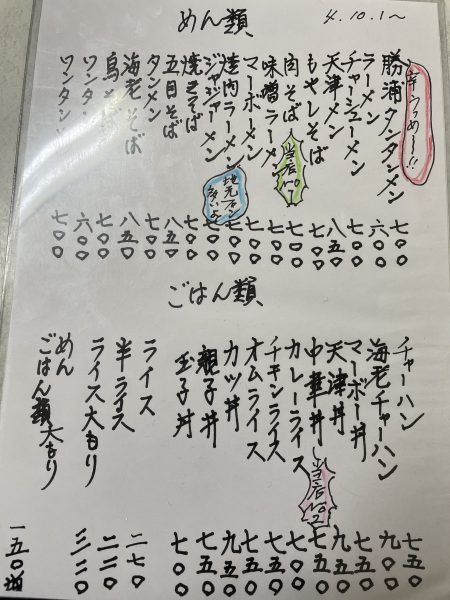 めん類
4.10.1〜
辛うめ〜!!
勝浦タンタンメン 七〇〇
ラーメン 六〇〇
チャーシューメン 七〇〇
天津メン 八五〇
もやしそば 七〇〇
肉そば 七〇〇
当店No1
味噌ラーメン 七〇〇
マーボーメン 七〇〇
焼肉ラーメン 七〇〇
ジャジャーメン 七〇〇
焼きそば 七〇〇
五目そば 八五〇
タンメン 七〇〇
海老そば 八五〇
鳥そば 七〇〇
ワンタン 六〇〇
ワンタンメン 七〇〇
ごはん類
チャーハン 七五〇
海老チャーハン 九〇〇
マーボー丼 七五〇
天津丼 九五〇
中華丼 七五〇
当店No2
カレーライス 七〇〇
チキンライス 七五〇
オムライス 九五〇
カツ丼 九五〇
親子丼 七五〇
玉子丼 七〇〇
ライス 二七〇
半ライス 二二〇
ライス大もり 三二〇
めん
ごはん類大もり 一五〇増